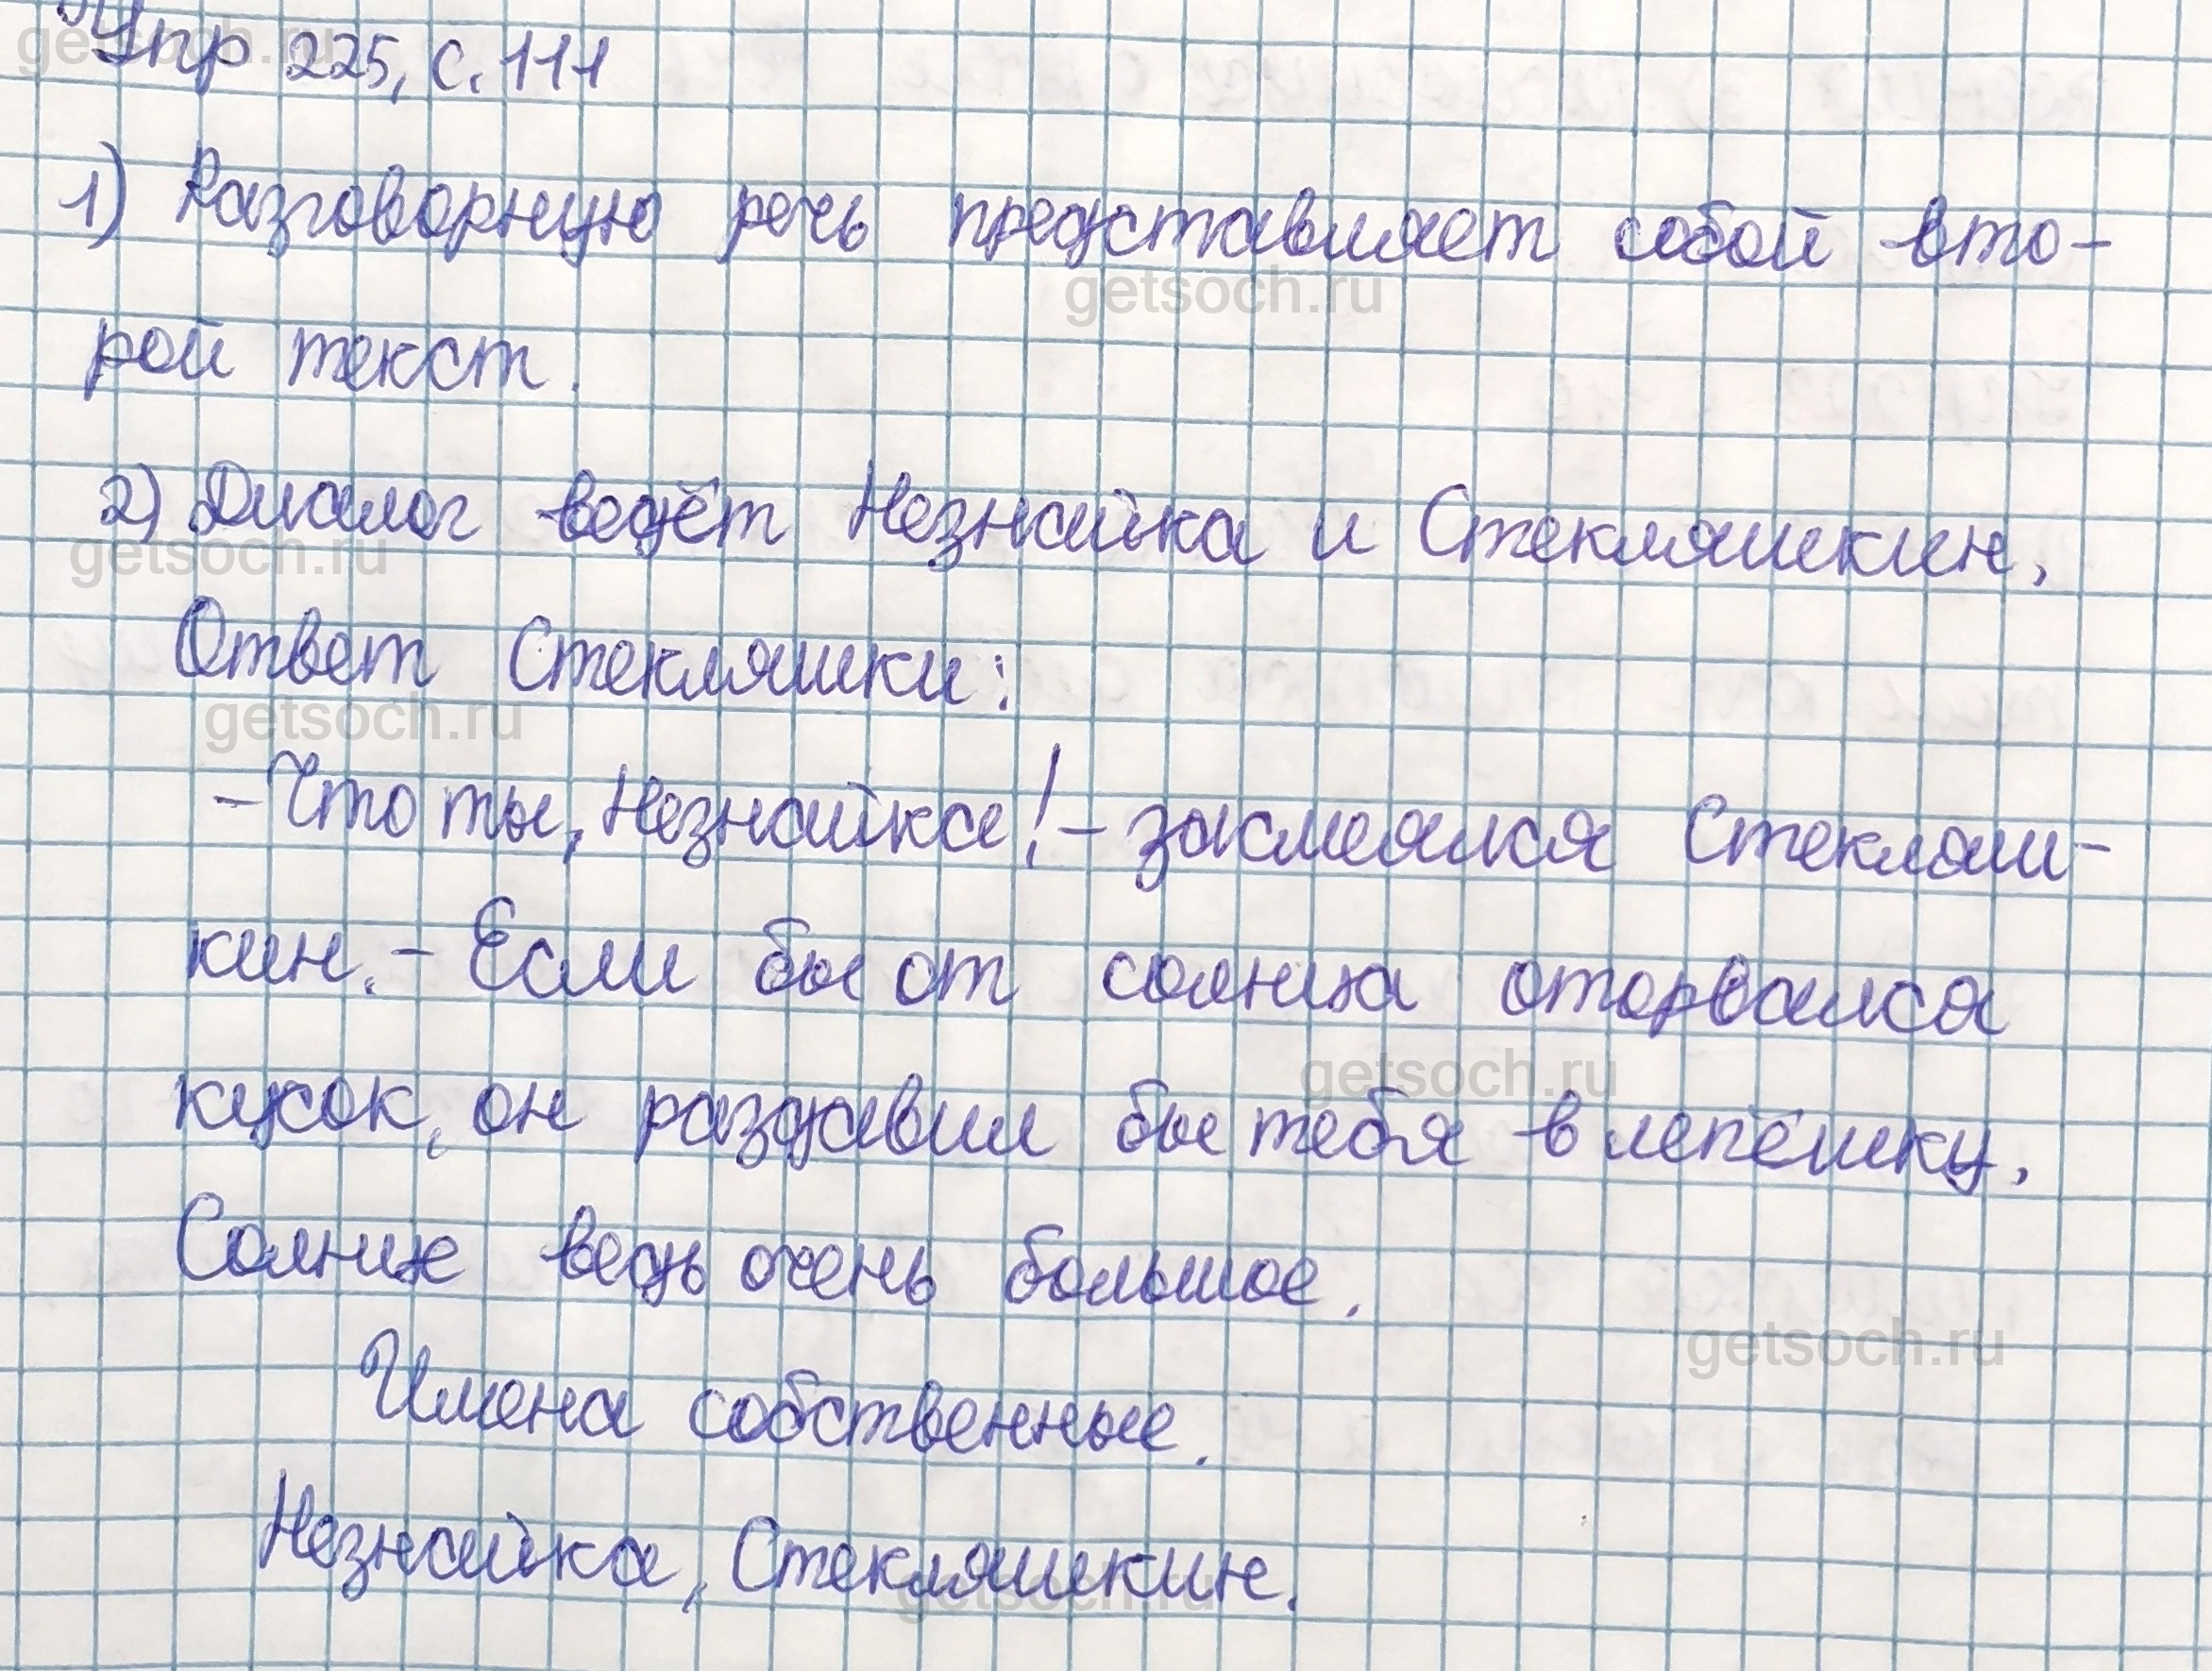 Упр 225, с. 111
1) Разговорную речь представляет собой вто-
рой текст.
2) Диалог ведёт Незнайка и Стекляшкин,
Ответ Стекляшки:
- Что ты, Незнайка! - засмеялся Стекляш-
кин. - Если бы от солнца оторвался
кусок, он раздавил бы тебя в лепёшку,
Солнце ведь очень большое.
Имена собственные.
Незнайка, Стекляшкин.
getsoch.ru
getsoch.ru
getsoch.ru
getsoch.ru
getsoch.ru
getsoch.ru
getsoch.ru